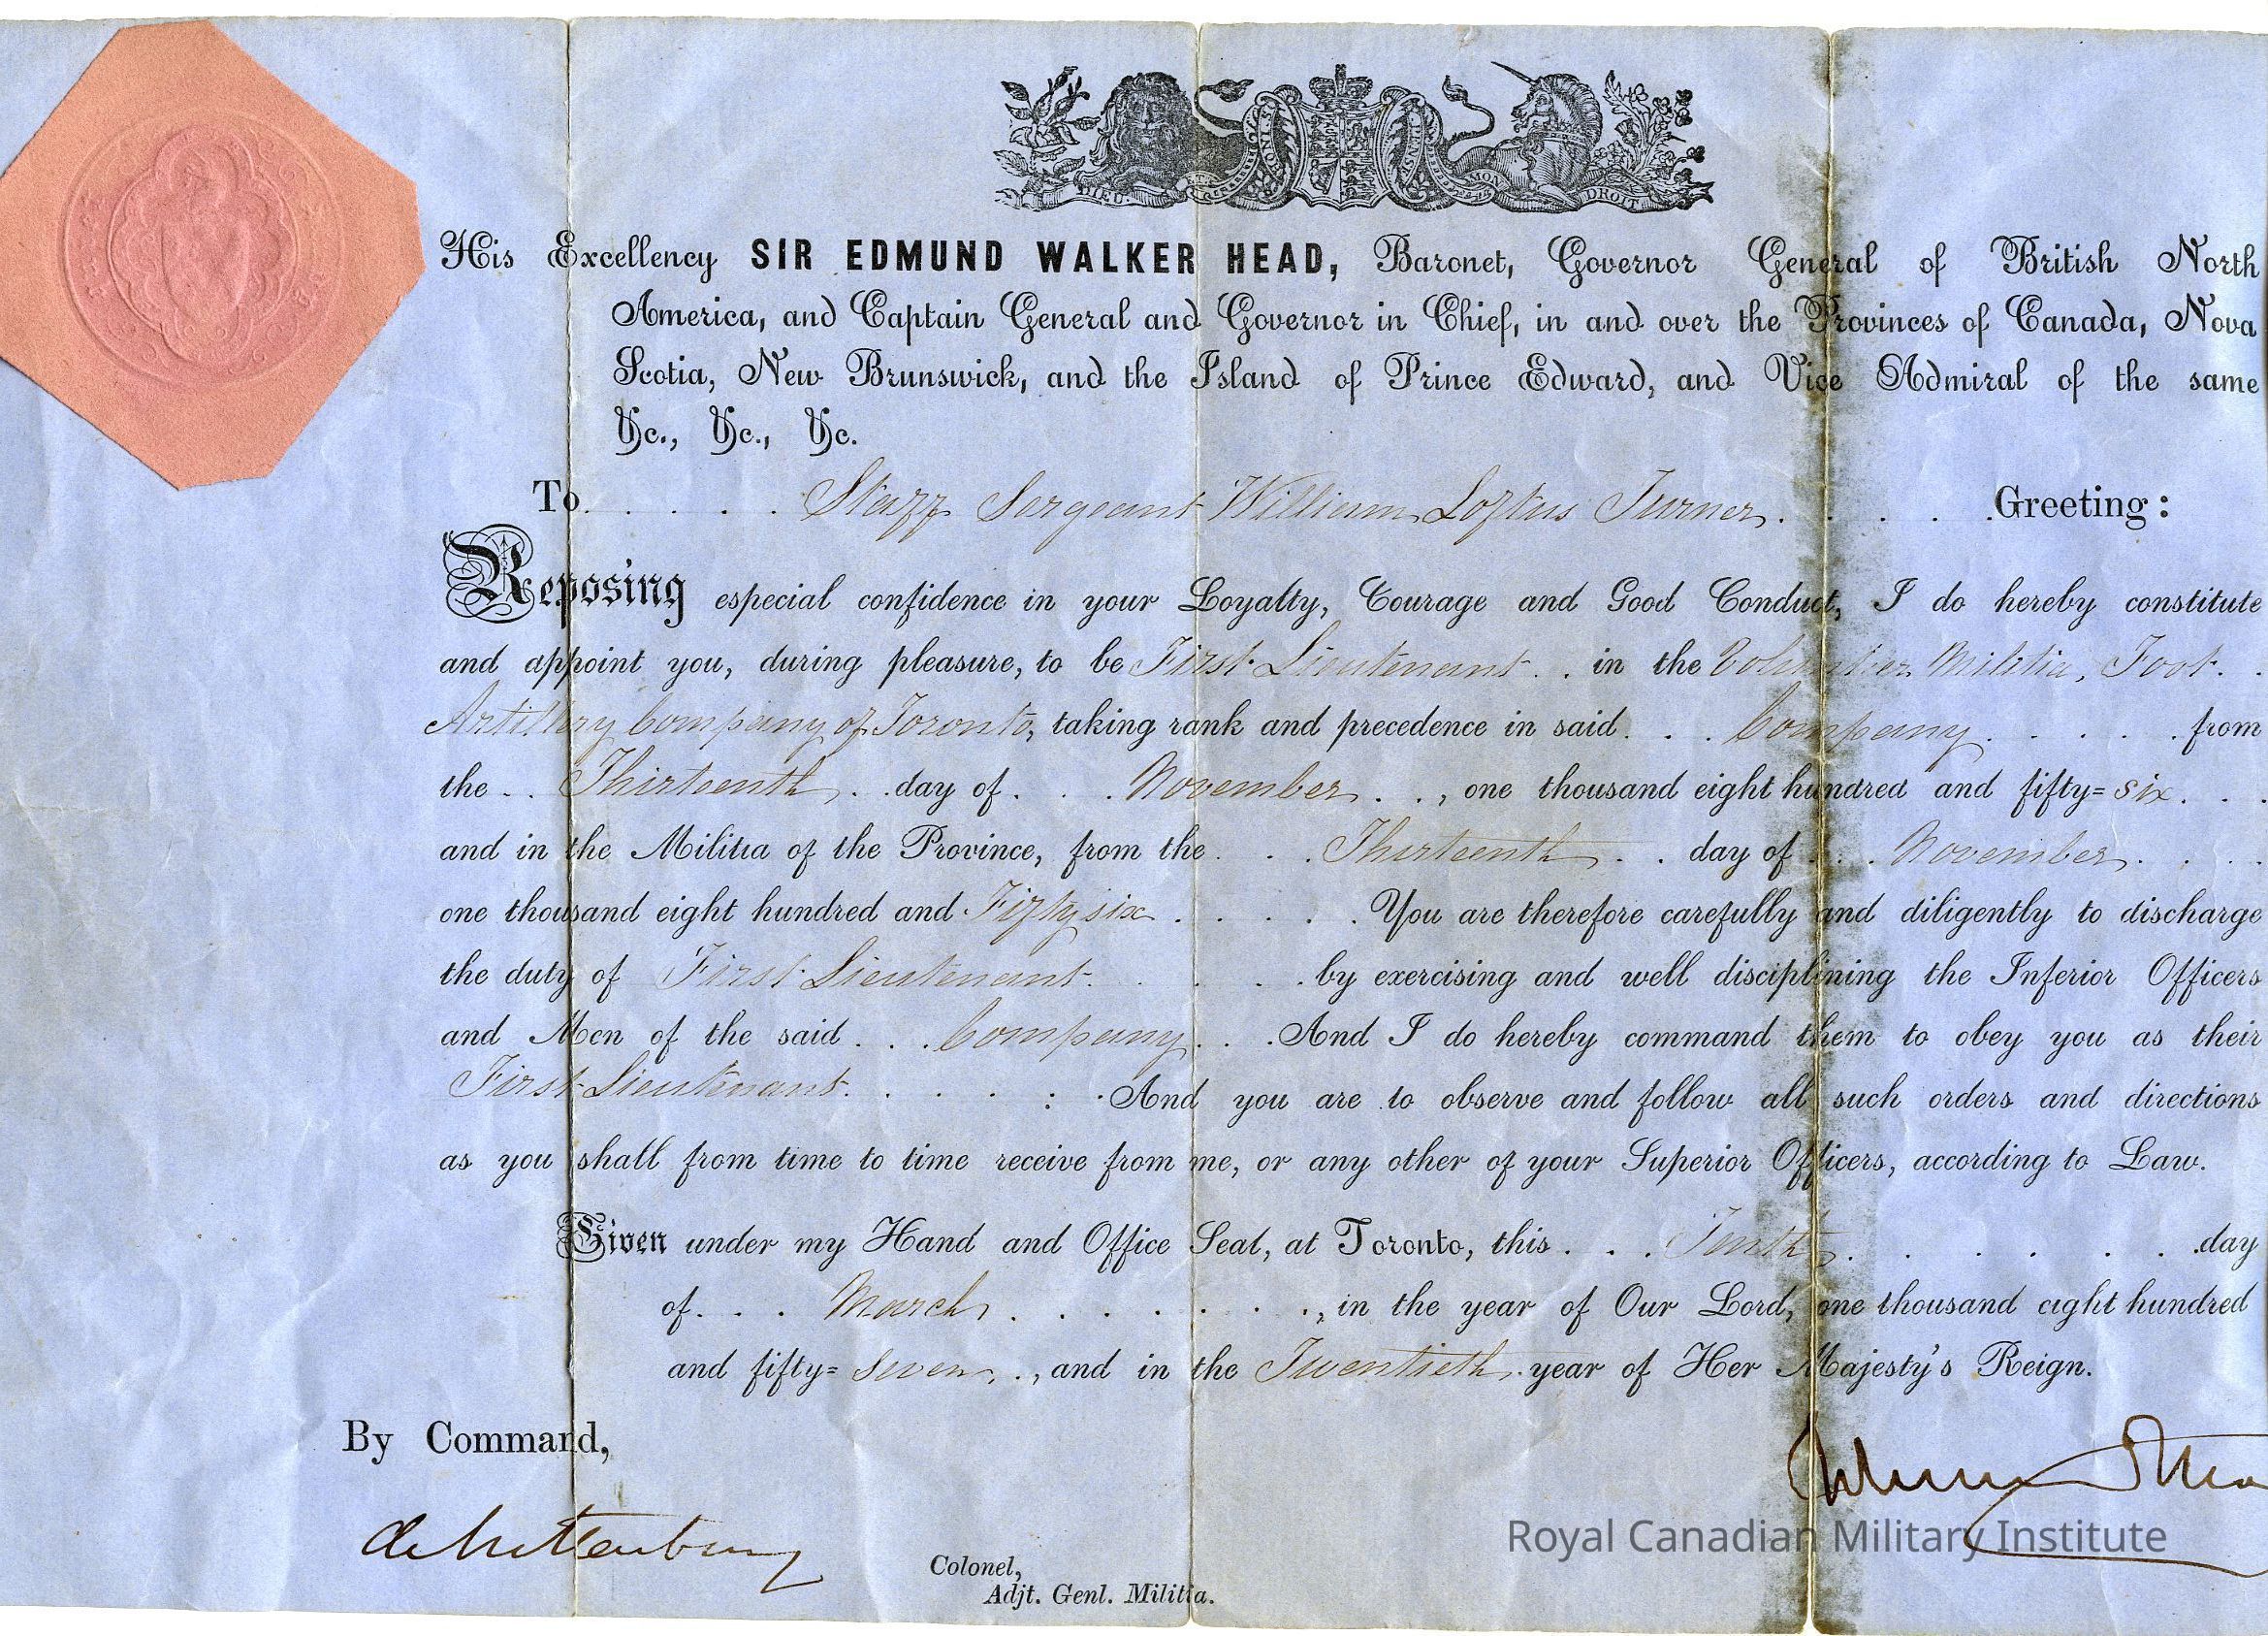 DIEU MON DROIT
His Excellency SIR EDMUND WALKER HEAD, Baronet, Governor General of British North
America, and Captain General and Governor in Chief, in and over the Provinces of Canada, Nova
Scotia, New Brunswick, and the Island of Prince Edward, and Vice Admiral of the same
&c., &c., &c.
To . . . . . Staff Sergeant William Loftus Turner . . . . . Greeting:
Reposing especial confidence in your Loyalty, Courage and Good Conduct, I do hereby constitute
and appoint you, during pleasure, to be First Lieutenant . . in the Volunteer Militia, Foot . .
Artillery Company of Toronto, taking rank and precedence in said . . . Company . . . . . from
the . . Thirteenth . . day of . . . November . . , one thousand eight hundred and fifty=six . . .
and in the Militia of the Province, from the . . . Thirteenth . . day of . . . November . . . .
one thousand eight hundred and Fifty six . . . . . You are therefore carefully and diligently to discharge
the duty of First Lieutenant . . . . by exercising and well disciplining the Inferior Officers
and Men of the said . . . Company . . . And I do hereby command them to obey you as their
First Lieutenant . . . . : . And you are to observe and follow all such orders and directions
as you shall from time to time receive from me, or any other of your Superior Officers, according to Law.
Given under my Hand and Office Seal, at Toronto, this . . . Tenth . . . . . . day
of . . . March . . . . . . . , in the year of Our Lord, one thousand eight hundred
and fifty= seven . . , and in the Twentieth . year of Her Majesty's Reign.
By Command,
Royal Canadian Military Institute
Colonel,
Adjt. Genl. Militia.